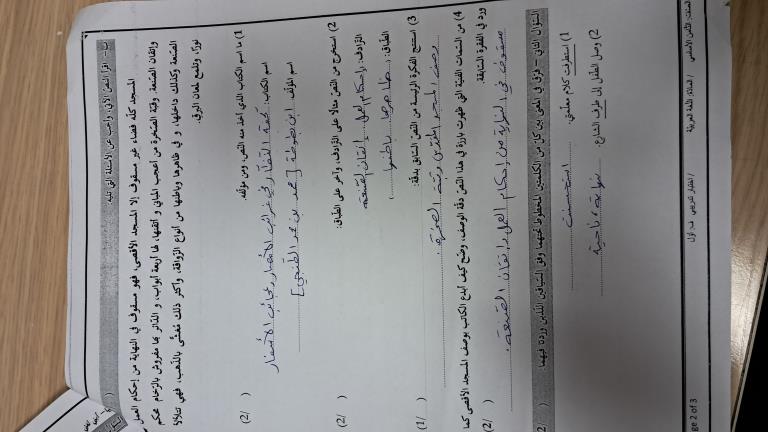 الصف: الثامن الأساسي / المادة: اللغة العربية / اختبار تدريبي ف. أول
ب - اقرأ النص الآتي، وأجب عن الأسئلة التي تليه:
المسجد كله فضاء غير مسقوف إلا المسجد الأقصى، فهو مسقوف في النهاية من إحكام العمل
وإتقان الصنعة. وقبّة الصخرة من أعجب المباني و أتقنها، لها أربعة أبواب، و الدائر بها مفروش بالرّخام محكم
الصنعة وكذلك داخلها، و في ظاهرها وباطنها من أنواع الزّواقة، وأكثر ذلك مُغشّى بالذّهب، فهي تتلألأ
نورًا، وتلمع لمعان البرق.
1) ما اسم الكتاب الذي أخذ منه النص، ومن مؤلفه. (2/ )
اسم الكتاب: تحفة النظّار في غرائب الأمصار وعجائب الأسفار
اسم المؤلف: ابن بطوطة [محمد بن
2) استخرج من النص مثالًا على الترادف، وآخر على الطباق. (2/ )
الترادف: إحكام العمل، إتقان الصنعة
الطباق: ظاهرها باطنها
3) استنتج الفكرة الرئيسة من النص السابق بدقة: (1/ )
وصف المسجد الأقصى وقبة الصخرة.
4) من السّمات الفنيّة التي ظهرت بارزة في هذا النص دقة الوصف، وضّح كيف أبدع الكاتب بوصف المسجد الأقصى كما
ورد في الفقرة السّابقة. (2/ )
مسقوف في النهاية من إحكام العمل وإتقان الصنعة.
السؤال الثاني - فرّق في المعنى بين كل من الكلمتين المخطوط تحتهما وفق السّياقين اللّذين وردتا فيهما (2/ )
1) استطرفت كلام معلّمتي. استحسنت
2) وصل الطّفل إلى طرف الشارع. نهاية، ناحية
ge 2 of 3